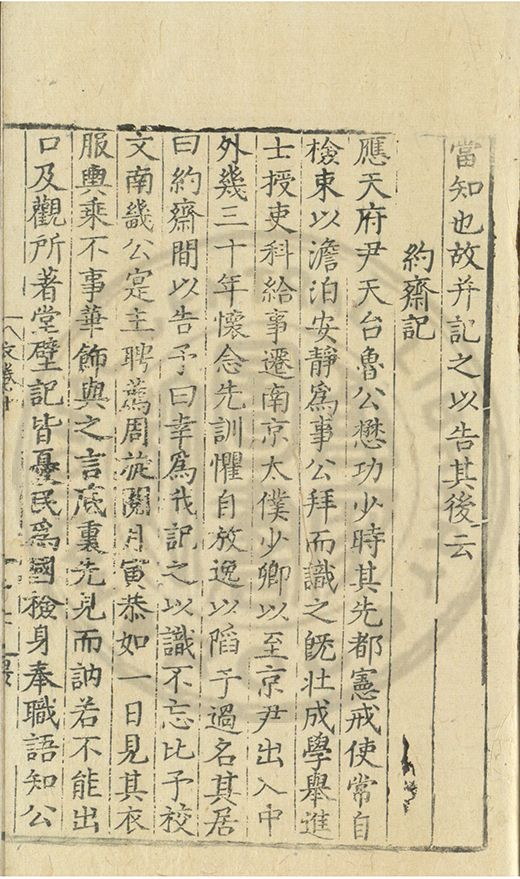 當知也故并記之以告其後云
約齋記
應天府尹天台魯公懋功少時其先都憲戒使常自
檢束以澹泊安靜爲事公拜而識之旣壯成學舉進
士授吏科給事遷南京太僕少卿以至京尹出入中
外幾三十年懷念先訓懼自放逸以䧟于過名其居
曰約齋間以告予曰幸爲我記之以識不忘比予校
文南畿公寔主聘薦周旋閱月寅恭如一日見其衣
服輿乘不事華餙與之言底裏先見而訥若不能出
口及觀所著堂壁記皆憂民爲國檢身奉職語知公